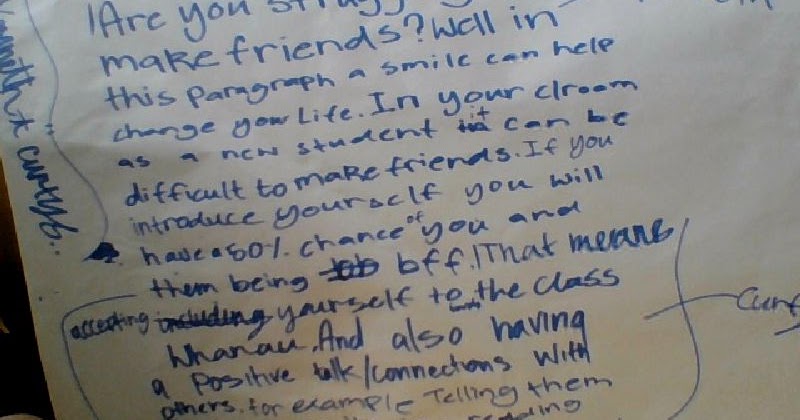 Are you
make friends? Well in
this paragraph a smile can help
change your Life. In your clroom
as a new student it can be
difficult to make friends. If you
introduce yourself you will
have a 50% chance of you and
them being bff. That means
accepting including yourself to the class
Whanau. And also having
a positive talk/connections with
others. for example Telling them